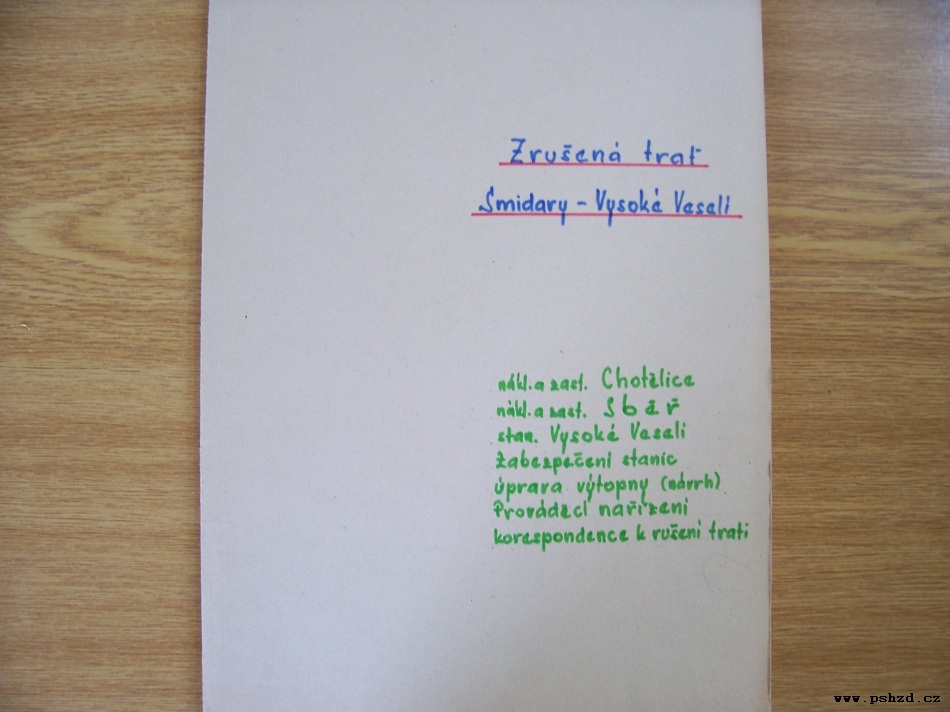 Zrušená trať
Smidary - Vysoké Veselí
nákl. a zast. Chotělice
nákl. a zast. Sběř
stan. Vysoké Veselí
Zabezpečení stanic
úprava výtopny (návrh)
Prováděcí nařízení
korespondence k rušení trati
www.pshzd.cz